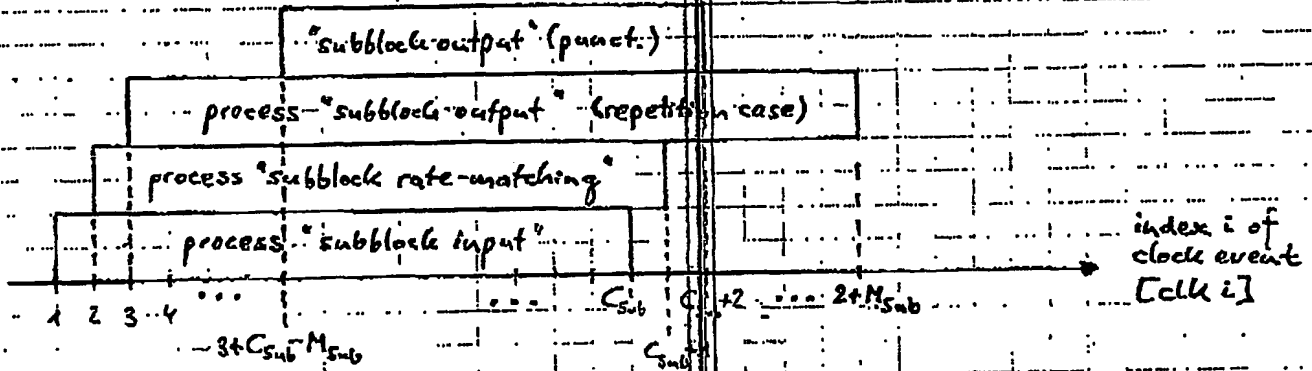 "subblock-output" (punct.)
process "subblock-output" (repetition case)
process "subblock rate-matching"
process "subblock input"
index i of
clock event
[clk i]
1 2 3 4 ... ... C_Sub +2 ... 2+M_Sub
3+C_Sub-M_Sub